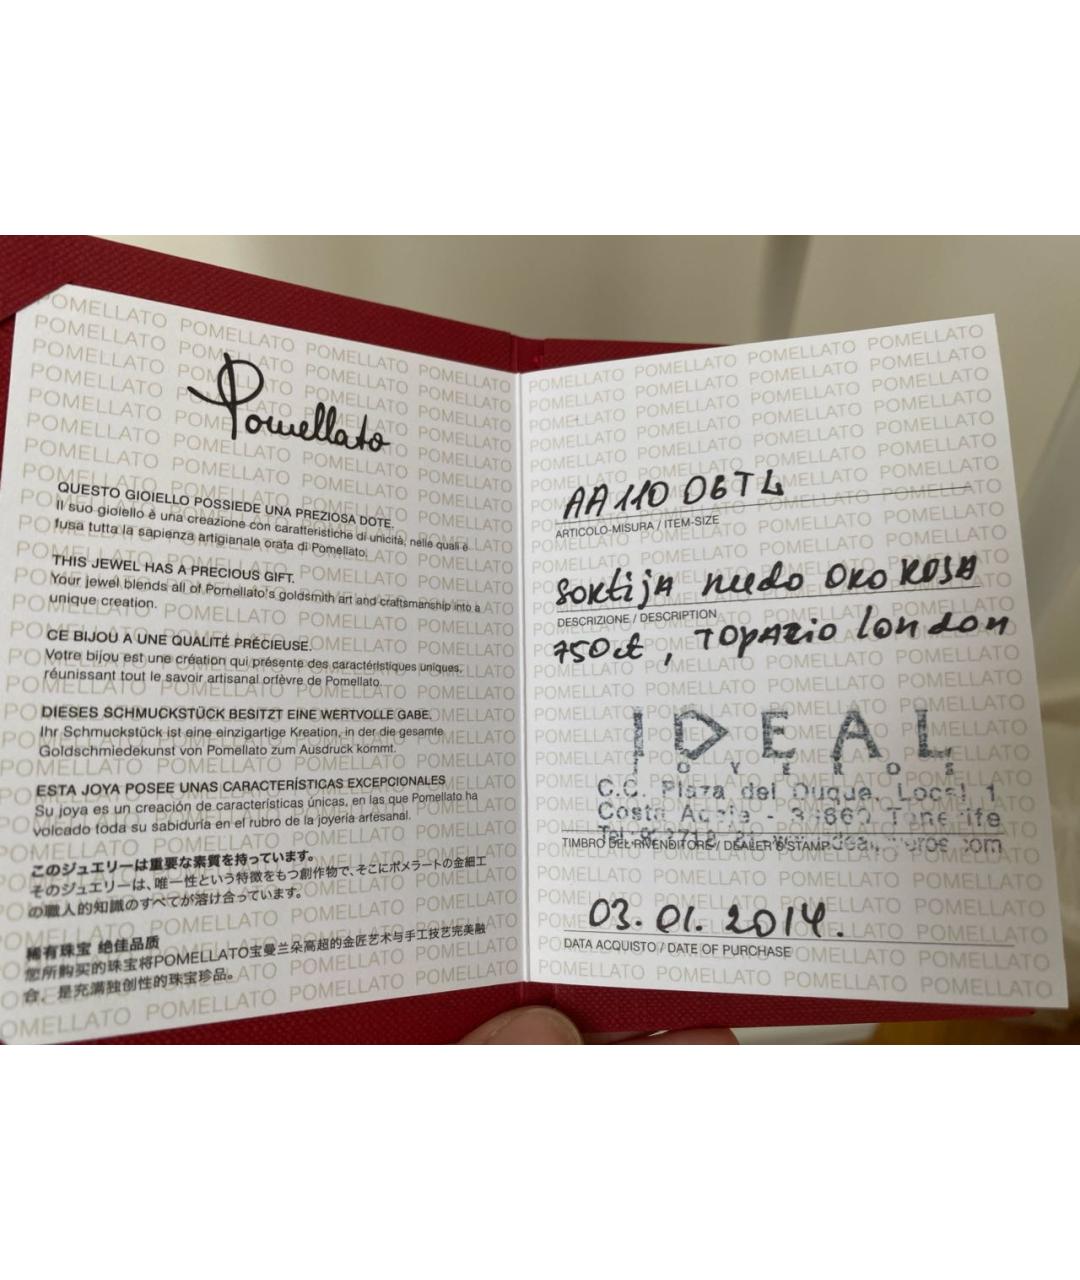 Pomellato
QUESTO GIOIELLO POSSIEDE UNA PREZIOSA DOTE.
Il suo gioiello è una creazione con caratteristiche di unicità, nelle quali è
fusa tutta la sapienza artigianale orafa di Pomellato.
THIS JEWEL HAS A PRECIOUS GIFT.
Your jewel blends all of Pomellato's goldsmith art and craftsmanship into a
unique creation.
CE BIJOU A UNE QUALITÉ PRÉCIEUSE.
Votre bijou est une création qui présente des caractéristiques uniques,
réunissant tout le savoir artisanal orfèvre de Pomellato.
DIESES SCHMUCKSTÜCK BESITZT EINE WERTVOLLE GABE.
Ihr Schmuckstück ist eine einzigartige Kreation, in der die gesamte
Goldschmiedekunst von Pomellato zum Ausdruck kommt.
ESTA JOYA POSEE UNAS CARACTERÍSTICAS EXCEPCIONALES
Su joya es un creación de características únicas, en las que Pomellato ha
volcado toda su sabiduría en el rubro de la joyería artesanal.
このジュエリーは重要な素質を持っています。
そのジュエリーは、唯一性という特徴をもつ創作物で、そこにポメラートの金細工
の職人的知識のすべてが溶け合っています。
稀有珠宝 绝佳品质
您所购买的珠宝将POMELLATO宝曼兰朵高超的金匠艺术与手工技艺完美融
合，是充满独创性的珠宝珍品。
AA110 06TL
ARTICOLO-MISURA / ITEM-SIZE
sortija nudo oro rosa
DESCRIZIONE / DESCRIPTION
750ct, Topazio london
IDEAL
C.C. Plaza del Duque, Local 1
Costa Adeje - 38660 Tenerife
TIMBRO DEL RIVENDITORE / DEALER'S STAMP
03.01.2014.
DATA ACQUISTO / DATE OF PURCHASE